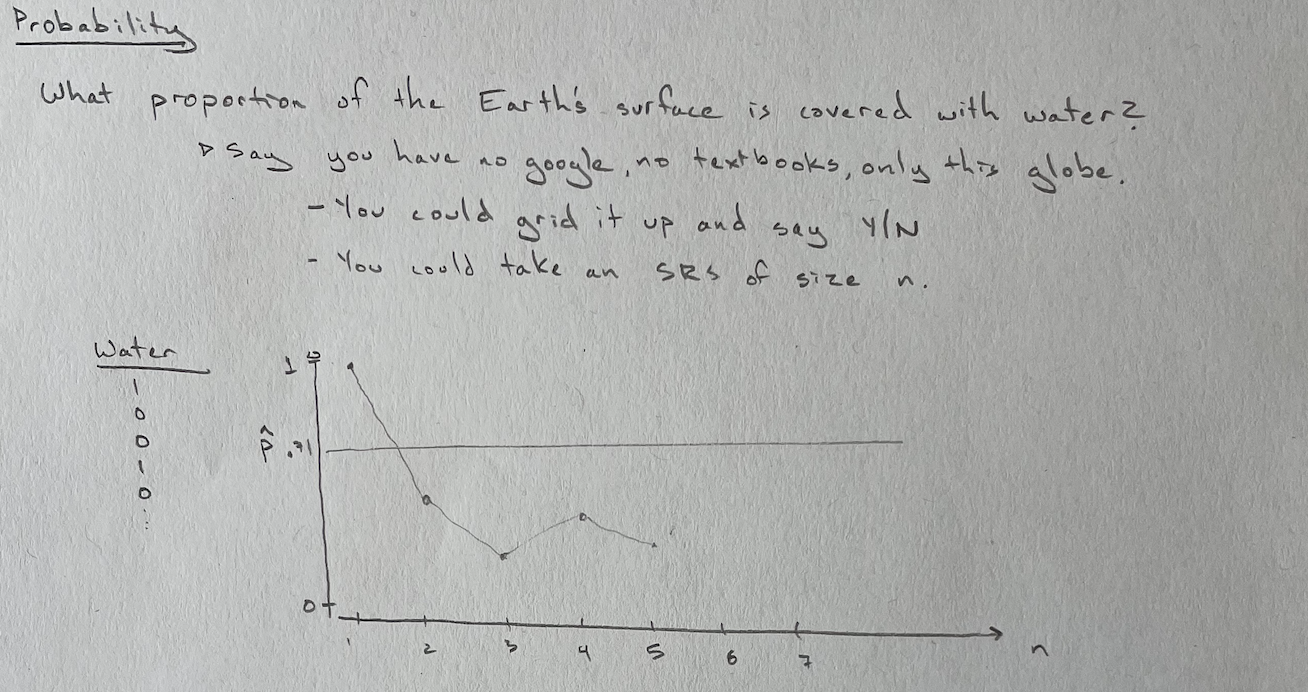 Probability
What proportion of the Earth's surface is covered with water?
▹ Say you have no google, no textbooks, only this globe.
- You could grid it up and say Y/N
- You could take an SRS of size n.
Water
1
0
0
1
0
⋮
1
p̂ .71
0
1 2 3 4 5 6 7 n